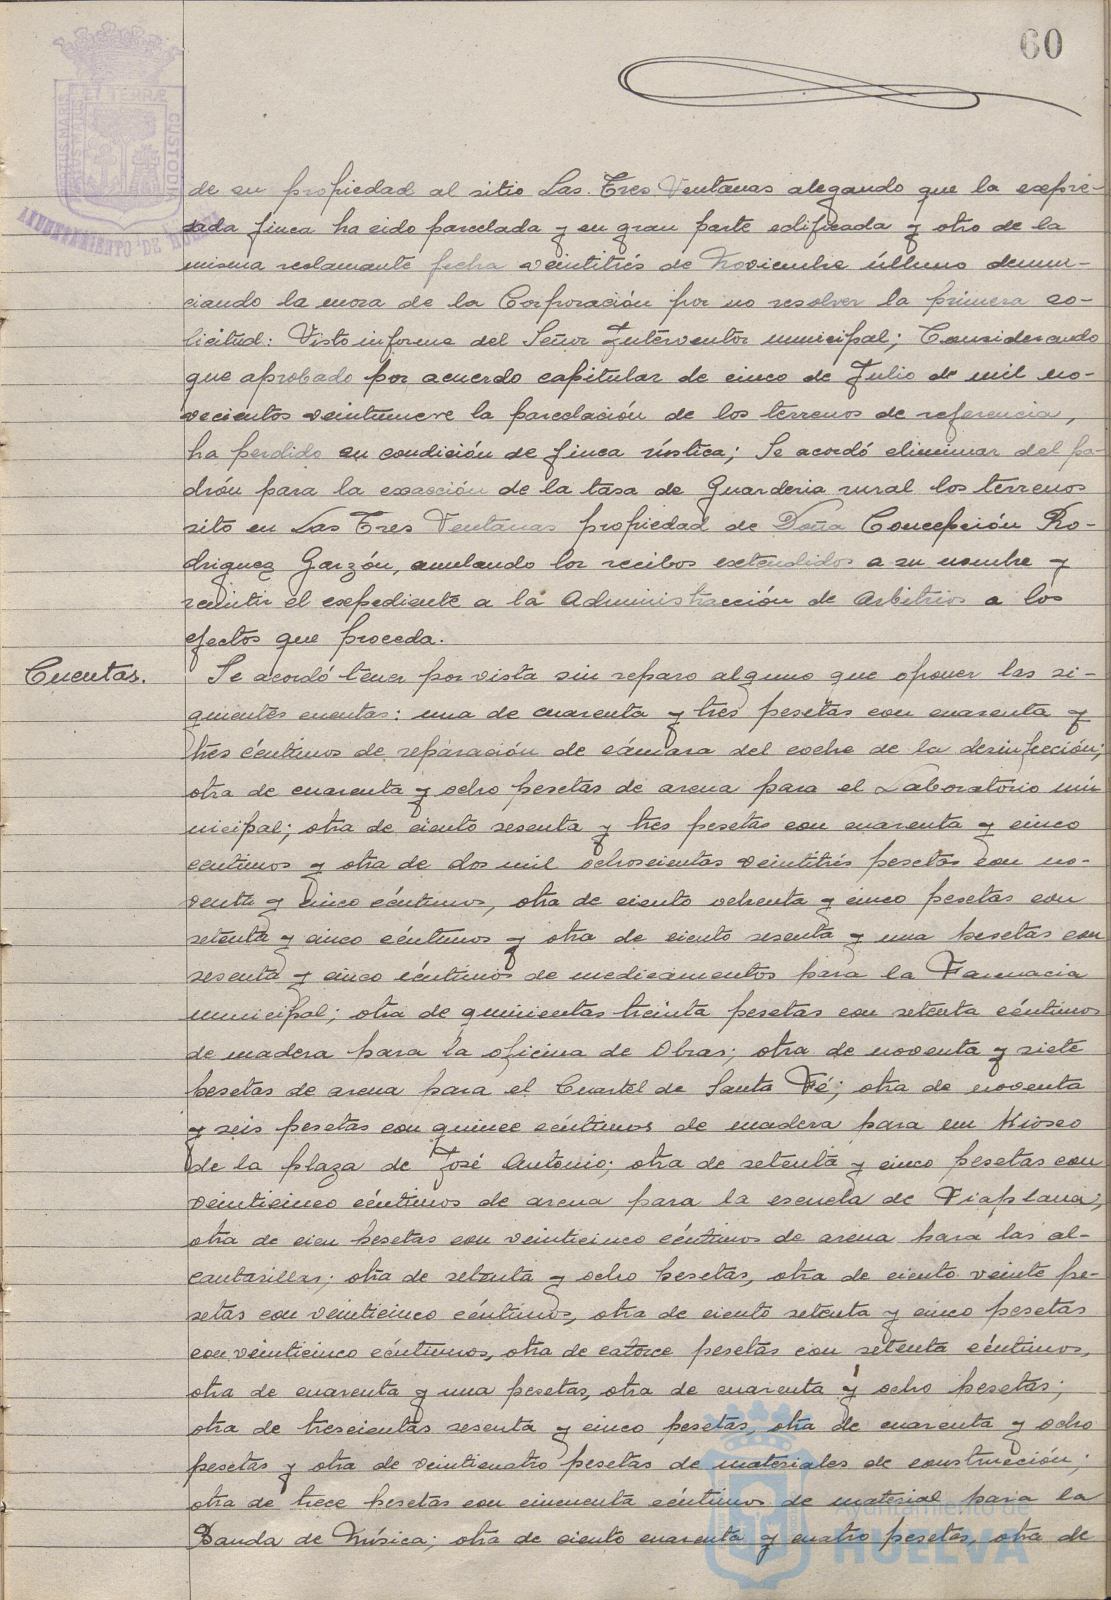 60
PORTUS MARIS ET TERRÆ CUSTODI
AYUNTAMIENTO DE HUELVA
de su propiedad al sitio Las Tres Ventanas alegando que la expre-
sada finca ha sido parcelada y en gran parte edificada y otro de la
misma reclamante fecha veintitrés de Noviembre último denun-
ciando la mora de la Corporación por no resolver la primera so-
licitud: Visto informe del Señor Interventor municipal; Considerando
que aprobado por acuerdo capitular de cinco de Julio de mil no-
vecientos veintinueve la parcelación de los terrenos de referencia,
ha perdido su condición de finca rústica; Se acordó eliminar del pa-
drón para la exacción de la tasa de Guarderia rural los terrenos
sito en Las Tres Ventanas propiedad de Doña Concepción Ro-
driguez Garzón, anulando los recibos extendidos a su nombre y
remitir el expediente a la Administracción de Arbitrios a los
efectos que proceda.
Cuentas.
Se acordó tener por vista sin reparo alguno que oponer las si-
guientes cuentas: una de cuarenta y tres pesetas con cuarenta y
tres céntimos de reparación de cámara del coche de la desinfección;
otra de cuarenta y ocho pesetas de arena para el Laboratorio mu-
nicipal; otra de ciento sesenta y tres pesetas con cuarenta y cinco
centimos y otra de dos mil ochoscientas veintitrés pesetas con no-
venta y cinco céntimos, otra de ciento ochenta y cinco pesetas con
setenta y cinco céntimos y otra de ciento sesenta y una pesetas con
sesenta y cinco céntimos de medicamentos para la Farmacia
municipal; otra de quinientas treinta pesetas con setenta céntimos
de madera para la oficina de Obras; otra de noventa y siete
pesetas de arena para el Cuartel de Santa Fé; otra de noventa
y seis pesetas con quince céntimos de madera para un Kiosco
de la plaza de José Antonio; otra de setenta y cinco pesetas con
veinticinco céntimos de arena para la escuela de Viaplana;
otra de cien pesetas con veinticinco céntimos de arena para las al-
cantarillas; otra de setenta y ocho pesetas, otra de ciento veinte pe-
setas con veinticinco céntimos, otra de ciento setenta y cinco pesetas
con veinticinco céntimos, otra de catorce pesetas con setenta céntimos,
otra de cuarenta y una pesetas, otra de cuarenta y ocho pesetas;
otra de trescientas sesenta y cinco pesetas, otra de cuarenta y ocho
pesetas y otra de veinticuatro pesetas de materiales de construcción;
otra de trece pesetas con cincuenta céntimos de material para la
Banda de Música; otra de ciento cuarenta y cuatro pesetas, otra de
Ayuntamiento de
HUELVA